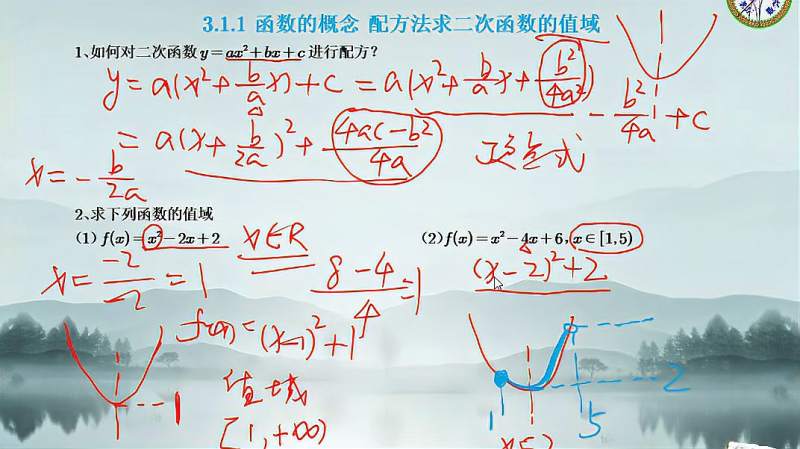 3.1.1 函数的概念 配方法求二次函数的值域
1、如何对二次函数 y=ax²+bx+c 进行配方?
y=a(x²+b/a x)+c=a(x²+b/a x+b²/4a²)-b²/4a+c
=a(x+b/2a)²+(4ac-b²)/4a 顶点式
x=-b/2a
2、求下列函数的值域
(1) f(x)=x²-2x+2 x∈R
(2) f(x)=x²-4x+6, x∈[1,5)
x=-2/-2=1
(8-4)/4=1
(x-2)²+2
f(x)=(x-1)²+1
1
值域
[1,+∞)
2
1
5